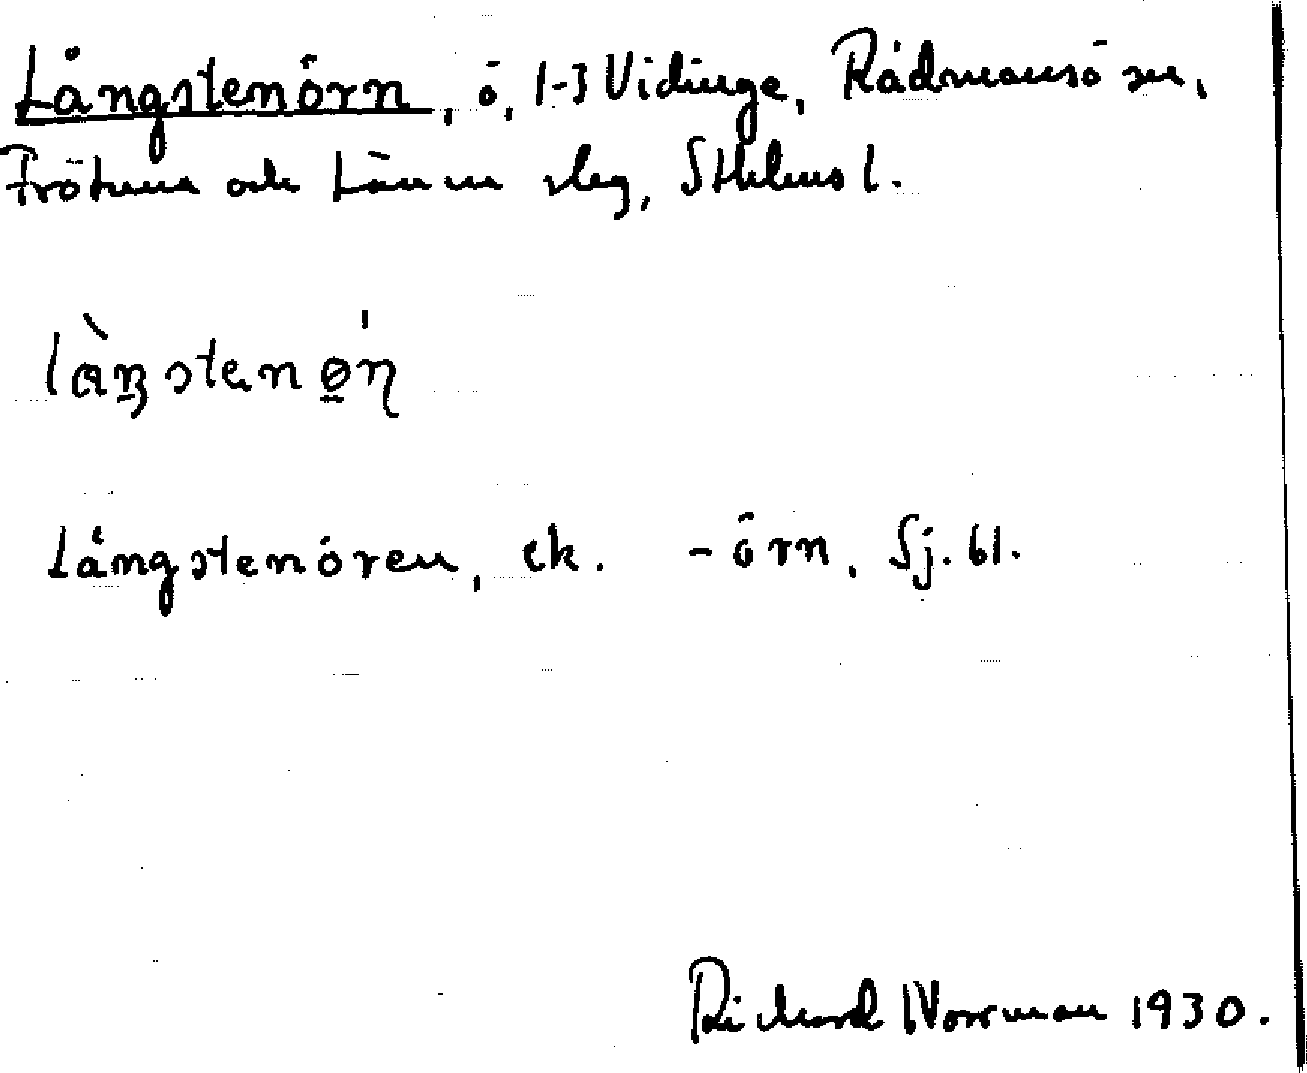 Långstenörn, ö, 1-3 Vidinge, Rådmansö sn,
Frötuna och Länna slg, Sthlms l.
Långstenören, ek. -örn, Sj. 61.
Richard Norrman 1930.